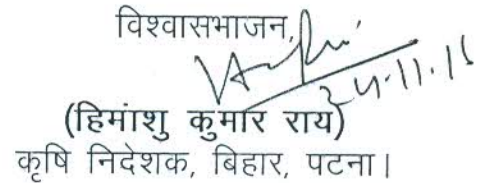 विश्वासभाजन,
24.11.16
(हिमांशु कुमार राय)
कृषि निदेशक, बिहार, पटना।